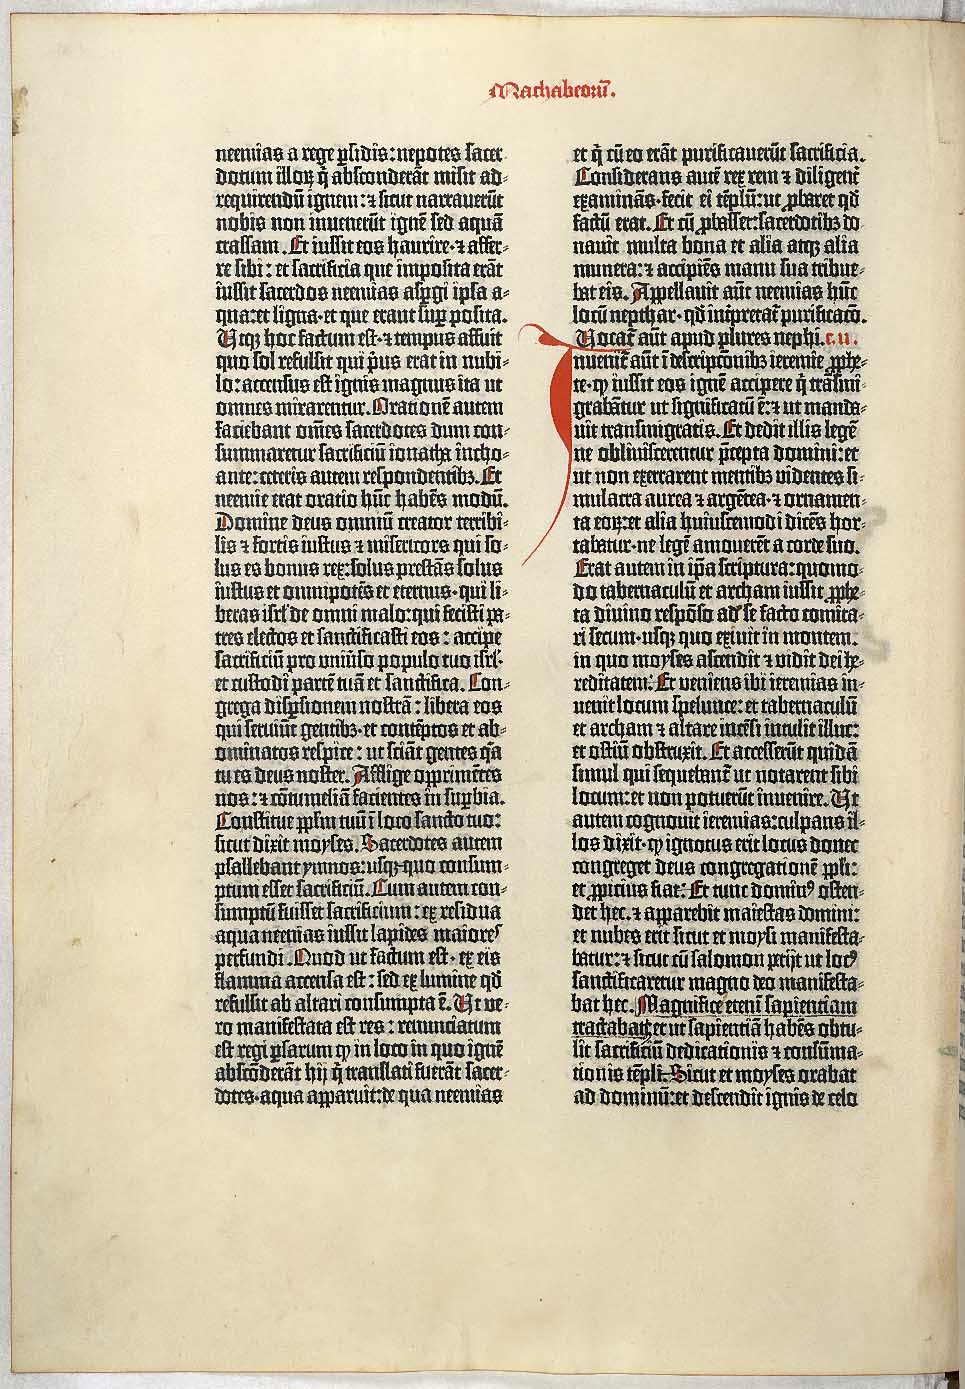 Machabeorū.
neemias a rege ꝑsidis: nepotes sacer
dotum illoꝝ q̄ absconderāt misit ad-
requirendū ignem: ⁊ sicut narrauerūt
nobis non inuenerūt ignē sed aquā
crassam. Et iussit eos haurire· ⁊ affer-
re sibi: et sacrificia que imposita erāt
iussit sacerdos neemias asꝑgi ipsa a-
qua: et ligna· et que erant suꝑ posita.
Utqꝫ hoc factum est· ⁊ tempus affuit
quo sol refulsit qui p̄us erat in nubi-
lo: accensus est ignis magnus ita ut
omnes mirarentur. Orationē autem
faciebant om̄es sacerdotes dum con-
summaretur sacrificiū ionatha incho-
ante: ceteris autem respondentibꝫ. Et
neemie erat oratio hūc habēs modū.
Domine deus omniū creator terribi-
lis ⁊ fortis iustus ⁊ misericors qui so-
lus es bonus rex: solus prestās solus
iustus et omnipotēs et eternus· qui li-
beras isrl̄ de omni malo: qui fecisti pa-
tres electos et sanctificasti eos: accipe
sacrificiū pro uniūso populo tuo isrl̄·
et custodi partē tuā et sanctifica. Con-
grega disꝑsionem nostrā: libera eos
qui seruiūt gentibꝫ· et contēptos et ab-
ominatos respice: ut sciāt gentes q̄a
tu es deus noster. Afflige opprimētes
nos: ⁊ cōtumeliā facientes in suꝑbia.
Constitue pp̄lm tuū ī loco sancto tuo:
sicut dixit moyses. Sacerdotes autem
psallebant ymnos: usqꝫ quo consum-
ptum esset sacrificiū. Cum autem con-
sumptū fuisset sacrificium: ex residua
aqua neemias iussit lapides maiores
perfundi. Quod ut factum est· ex eis
flamma accensa est: sed ex lumine qd̄
refulsit ab altari consumpta ē. Ut ve-
ro manifestata est res: renunciatum
est regi ꝑsarum ꝙ in loco in quo ignē
abscōderāt hij q̄ translati fuerāt sacer-
dotes· aqua apparuit: de qua neemias
et q̄ cū eo erāt purificauerūt sacrificia.
Considerans autē rex rem ⁊ diligent̄
examinās· fecit ei tēplū: ut ꝓbaret qd̄
factū erat. Et cū ꝓbasset: sacerdotibꝫ do
nauit multa bona et alia atqꝫ alia
munera: ⁊ accipiēs manu sua tribue-
bat eis. Appellauit aūt neemias hūc
locū nepthar· qd̄ int̄pretat̄ purificacō.
Vocat̄ aūt apud plures nephi. c. ii.
Inueniūt̄ aūt ī descripcōnibꝫ ieremie ꝓphe-
te· ꝙ iussit eos ignē accipere q̄ trāsmi-
grabātur ut significatū ē: ⁊ ut manda-
uit transmigratis. Et dedit illis legē
ne obliuiscerentur p̄cepta domini: et
ut non exerrarent mentibꝫ videntes si-
mulacra aurea ⁊ argētea· ⁊ ornamen-
ta eoꝝ: et alia huiuscemodi dicēs hor-
tabatur· ne legē amouerēt a corde suo.
Erat autem in ip̄a scriptura: quomo-
do tabernaculū et archam iussit ꝓphe-
ta diuino respōso ad se facto comita-
ri secum· usqꝫ quo exiuit in montem:
in quo moyses ascendit ⁊ vidit dei he-
reditatem. Et veniens ibi ieremias in-
uenit locum spelunce: et tabernaculū
et archam ⁊ altare incēsi intulit illuc:
et ostiū obstruxit. Et accesserūt quidā
simul qui sequebant̄ ut notarent sibi
locum: et non potuerūt inuenire. Ut
autem cognouit ieremias: culpans il-
los dixit· ꝙ ignotus erit locus donec
congreget deus congregationē ppl̄i:
et ꝓpicius fiat. Et tunc dominꝰ osten-
det hec· ⁊ apparebit maiestas domini:
et nubes erit sicut et moysi manifesta-
batur: ⁊ sicut cū salomon peciit ut locꝰ
sanctificaretur magno deo manifesta-
bat hec. Magnifice eteni sapientiam
tractabat: et ut sapientiā habēs obtu-
lit sacrificiū dedicationis ⁊ consūma-
tionis tēpli. Sicut et moyses orabat
ad dominū: et descendit ignis de celo